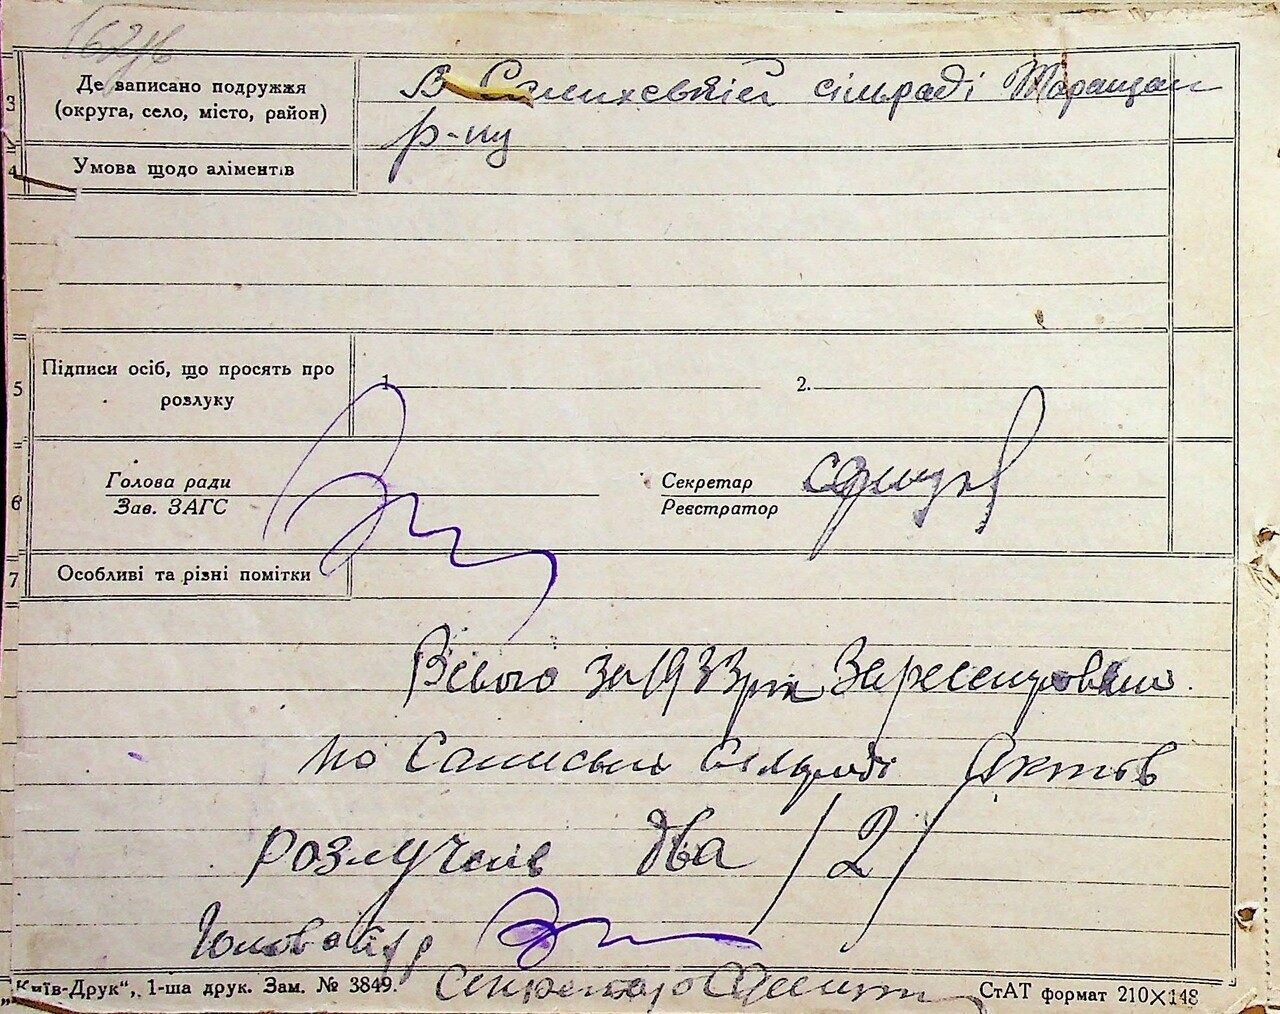 3 Де записано подружжя
(округа, село, місто, район)
В сільраді Таращан
р-ну
4 Умова щодо аліментів
5 Підписи осіб, що просять про
розлуку
1. 2.
6 Голова ради
Зав. ЗАГС
Секретар
Реєстратор
7 Особливі та різні помітки
Всього за 1933 рік
по сільраді Актов
розлучень два /2/
Голова с/р
Секретар
„Київ-Друк“, 1-ша друк. Зам. № 3849.
СтАТ формат 210×148